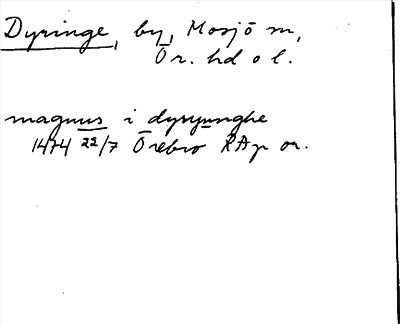 Dyringe, by, Mosjö sn,
Ör. hd o l.
magnus i dyryunghe
1474 22/7 Örebro RAp or.